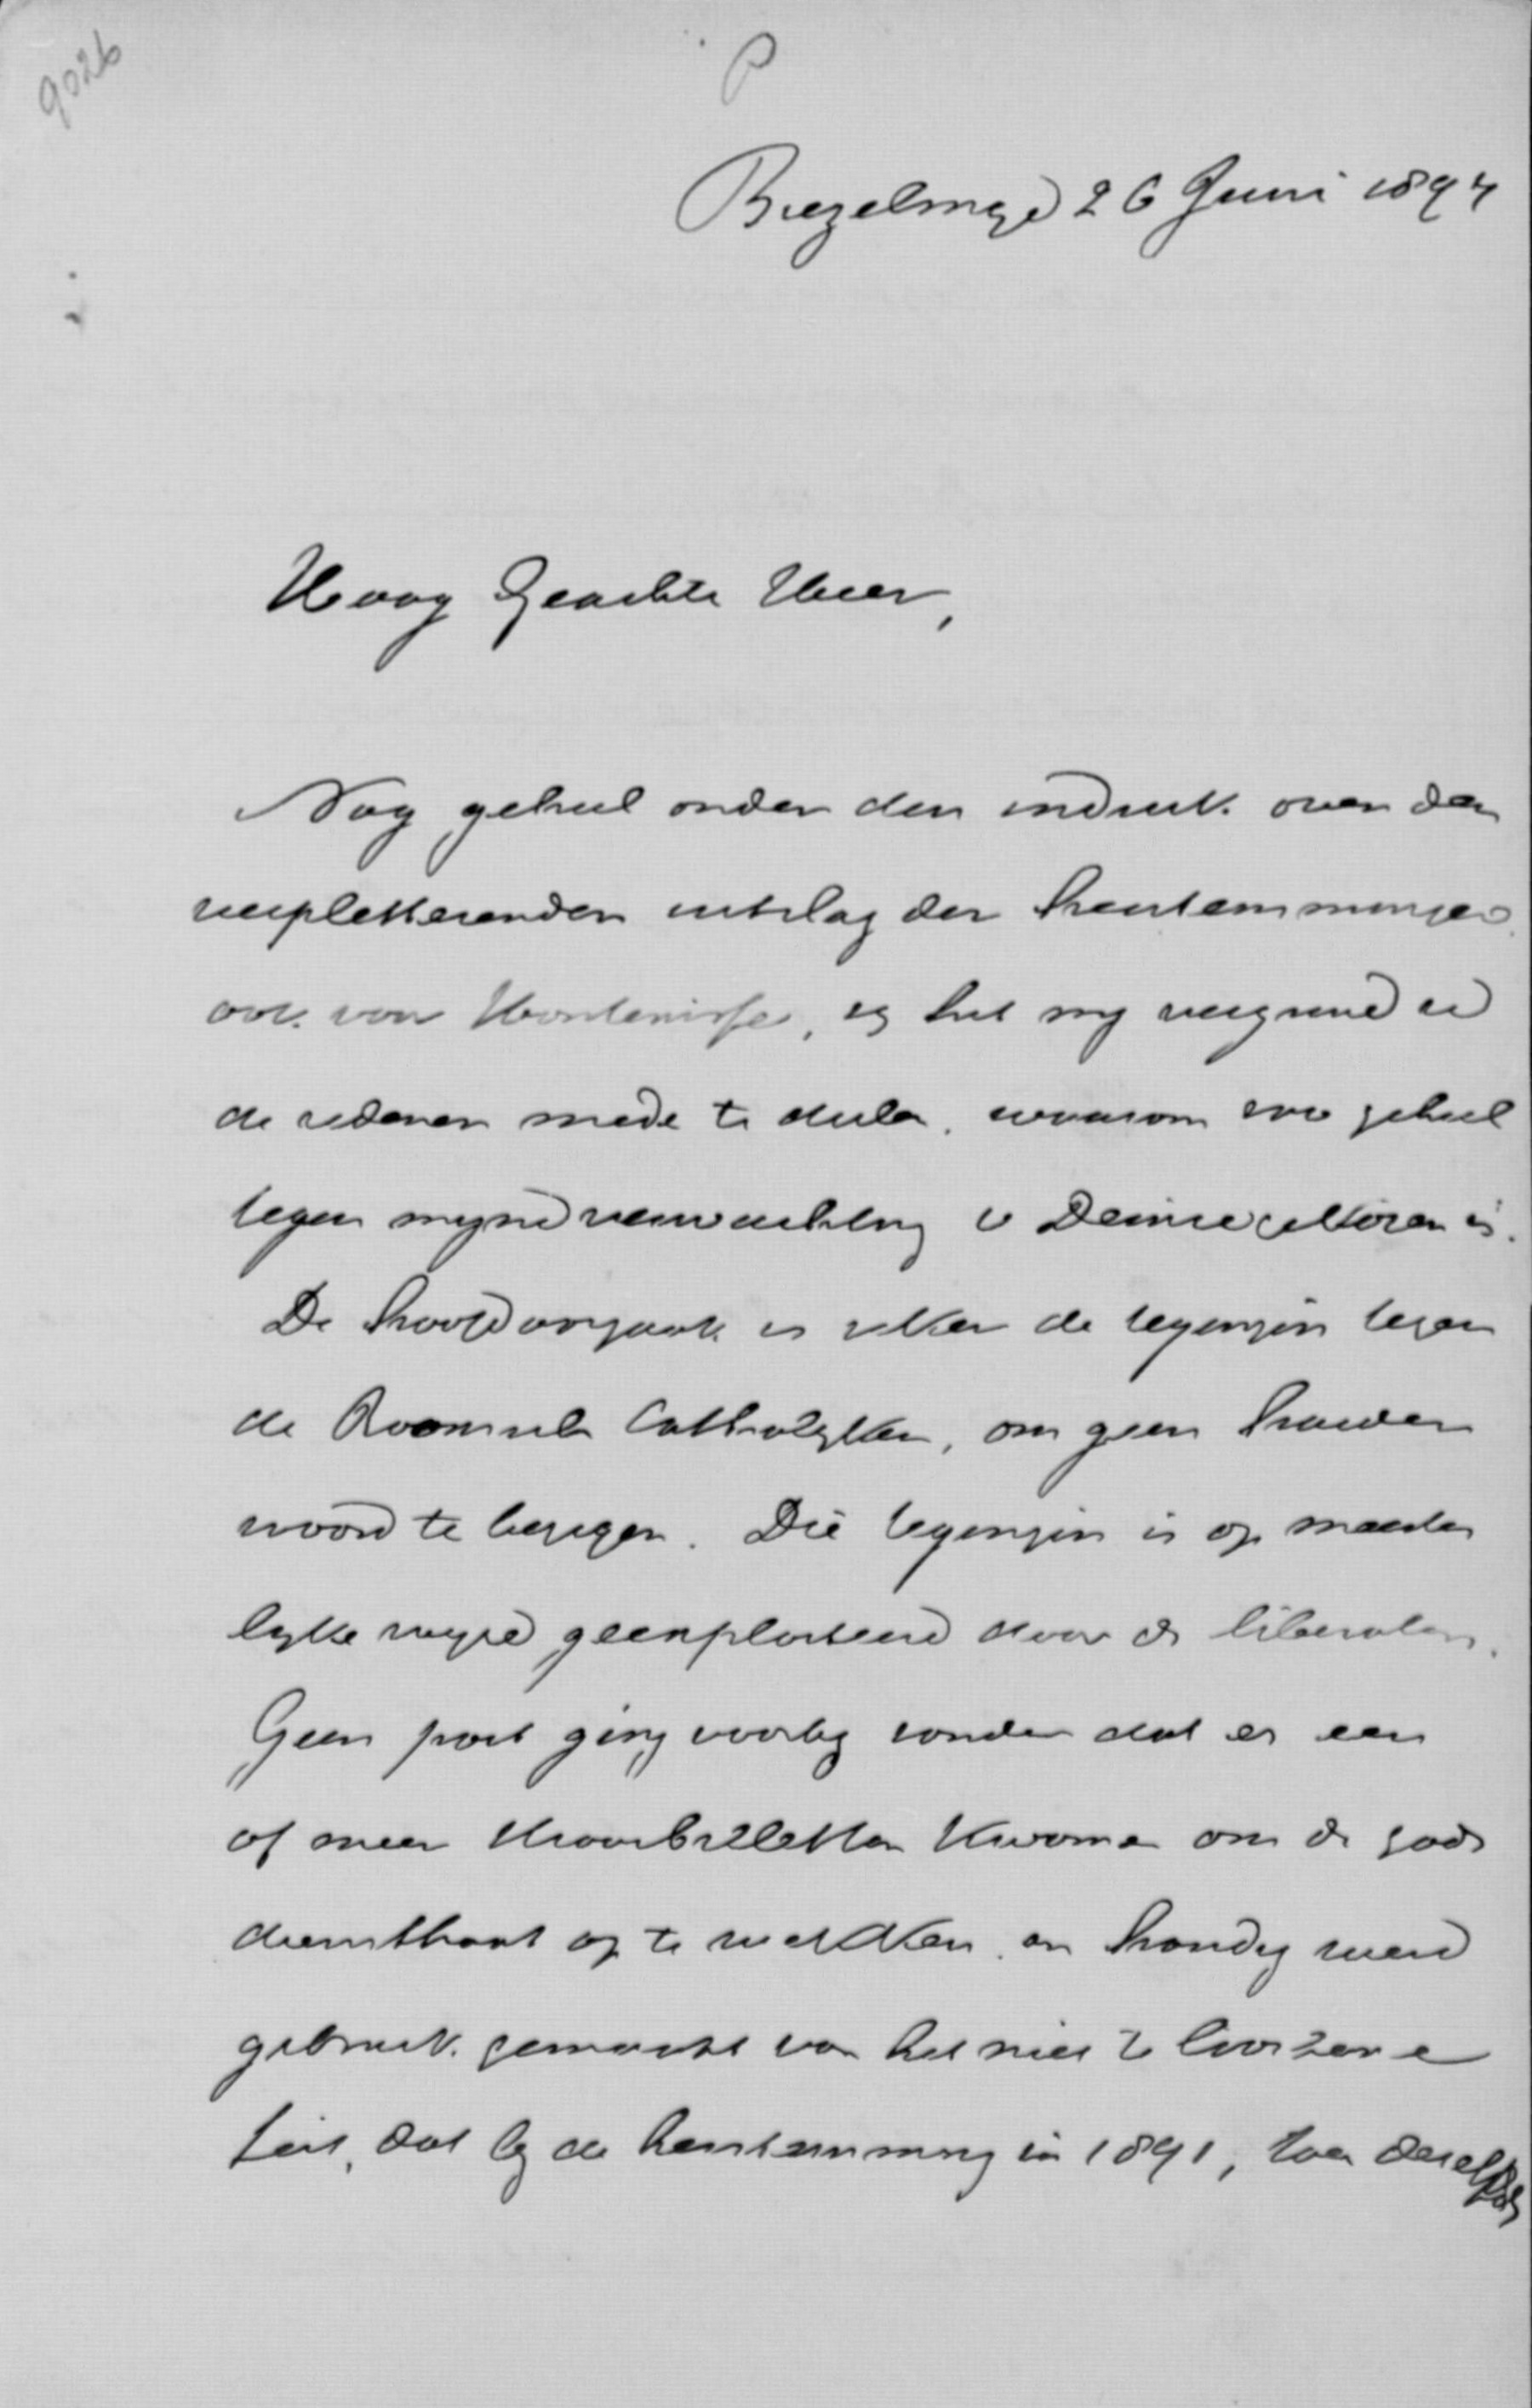 9026
P
Biezelinge 26 Juni 1897
Hoog Geachte Heer,
Nog geheel onder den indruk over den
verpletterenden uitslag der herstemmingen
ook van Hontenisse, zij het mij vergund u
de redenen mede te deelen, waarom zoo geheel
tegen mijne verwachting v Deinse gekozen is.
De hoofdoorzaak is zeker de tegenzin tegen
de Roomsch Catholyken, om geen harder
woord te bezigen. Die tegenzin is op meester
lyke wyze geexploiteerd door de liberalen.
Geen post ging voorby zonder dat er een
of meer strooibilletten kwamen om de gods
diensthaat op te wekken en handig werd
gebruik gemaakt van het niet te loochenen
feit, dat by de herstemming in 1891, toen dezelfde